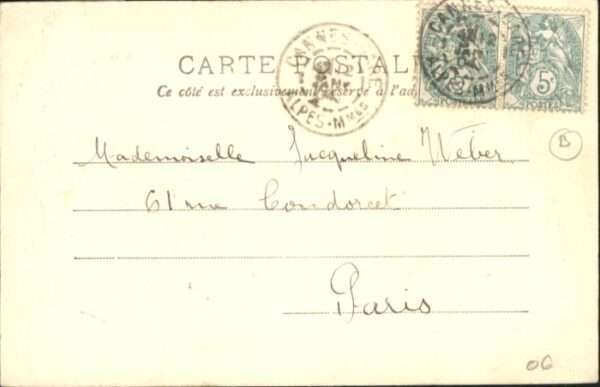 CARTE POSTALE
Ce côté est exclusivement réservé à l'ad
CANNES
ALPES-Mmes
CANNES
ALPES-Mmes
5c
POSTES
B
Mademoiselle Jacqueline Weber
61 rue Condorcet
Paris
06